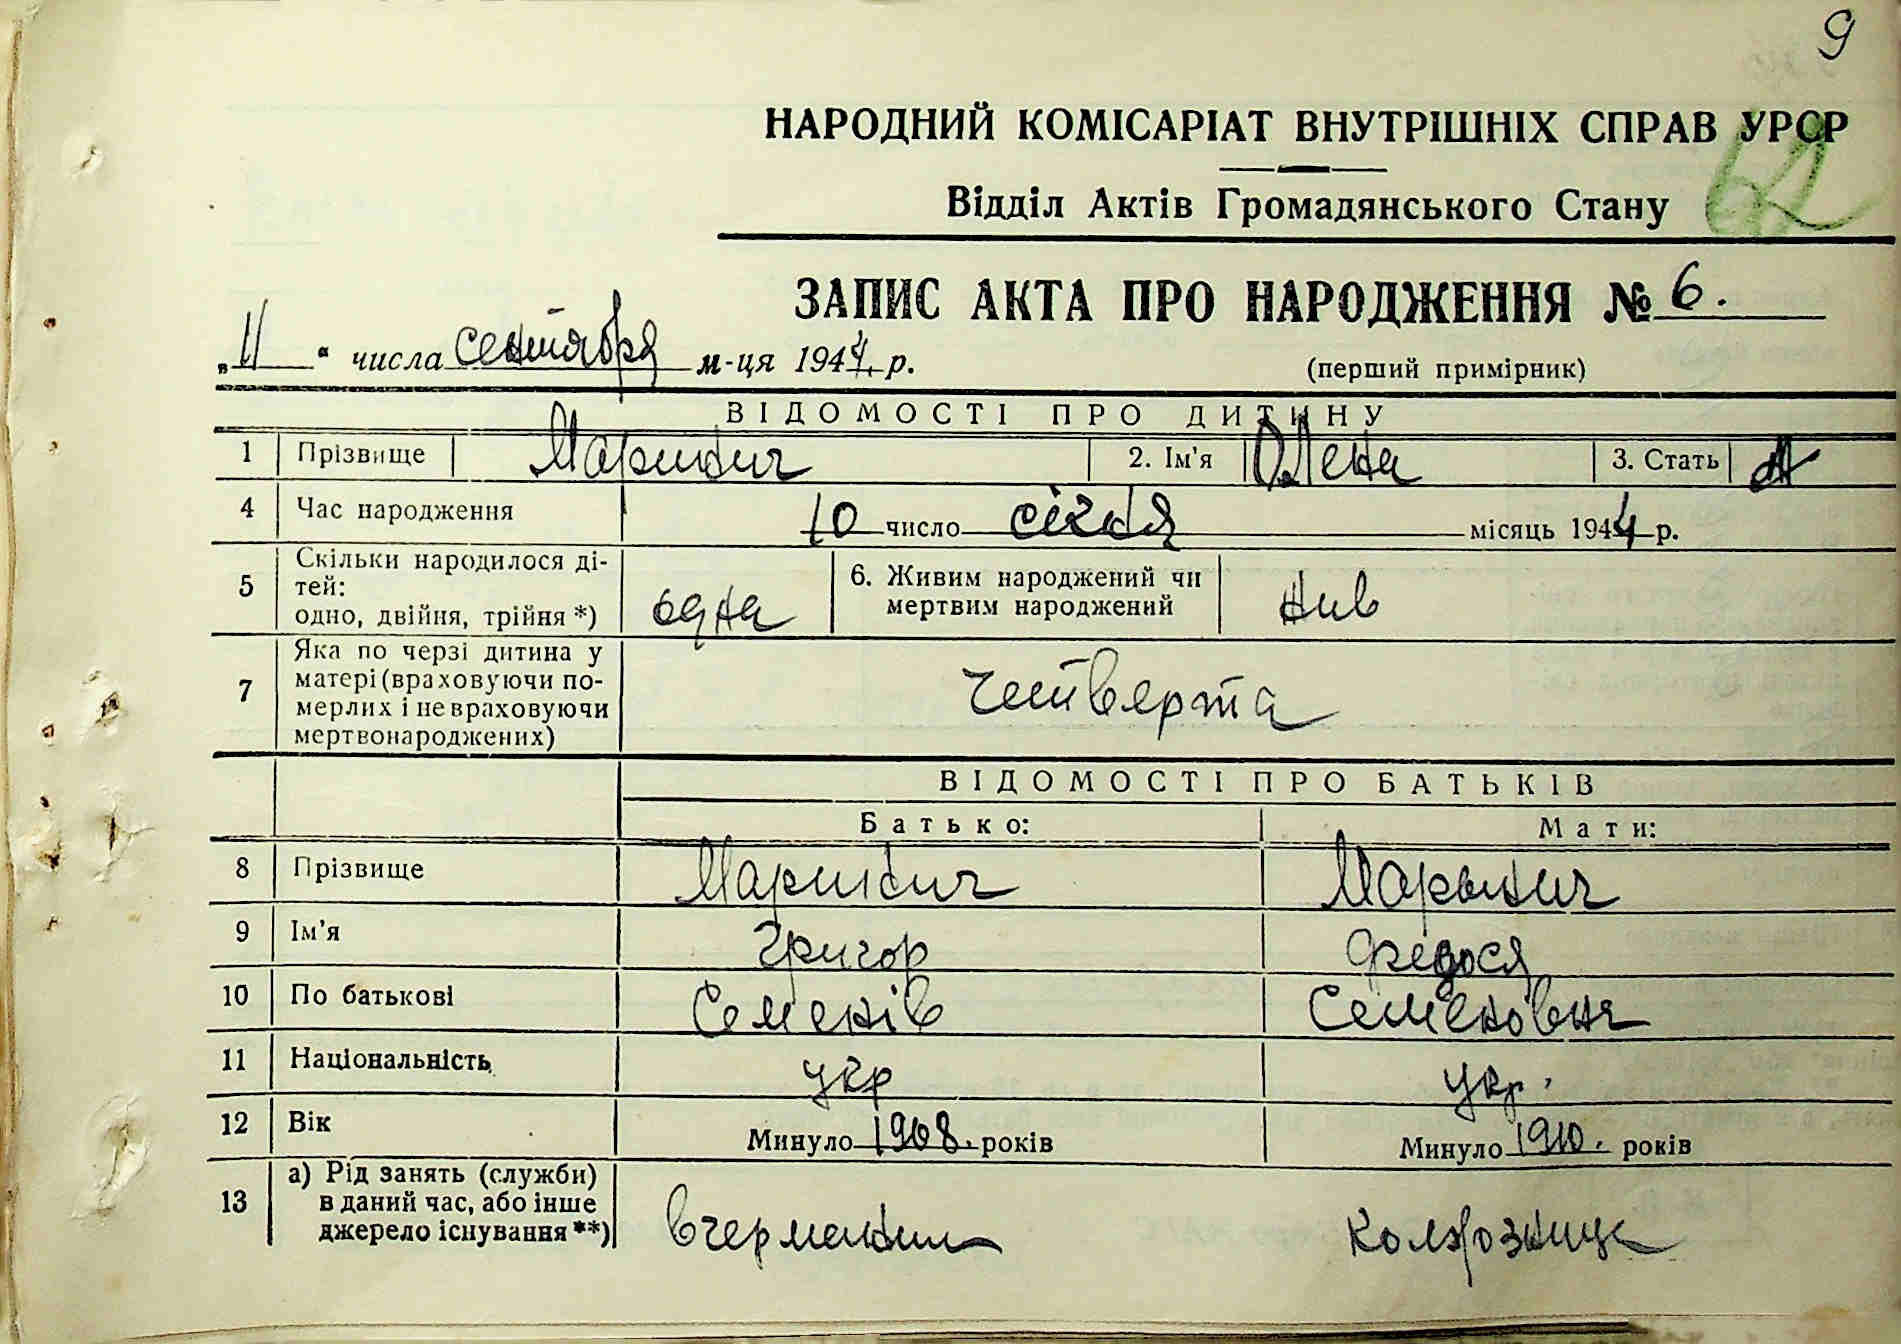 9
НАРОДНИЙ КОМІСАРІАТ ВНУТРІШНІХ СПРАВ УРСР
62
Відділ Актів Громадянського Стану
ЗАПИС АКТА ПРО НАРОДЖЕННЯ № 6.
„11“ числа сентября м-ця 1944 р.
(перший примірник)
ВІДОМОСТІ ПРО ДИТИНУ
1 Прізвище Маринич 2. Ім'я Олена 3. Стать
4 Час народження 10 число січня місяць 1944 р.
5 Скільки народилося ді-
тей:
одно, двійня, трійня *) одна
6. Живим народжений чи
мертвим народжений жив
7 Яка по черзі дитина у
матері (враховуючи по-
мерлих і не враховуючи
мертвонароджених) четверта
ВІДОМОСТІ ПРО БАТЬКІВ
Батько: Мати:
8 Прізвище Маринич Маринич
9 Ім'я Григор Федося
10 По батькові Семенів Семеновна
11 Національність укр укр.
12 Вік Минуло 1908. років Минуло 1910. років
13 а) Рід занять (служби)
в даний час, або інше
джерело існування **) в германии колхозниця